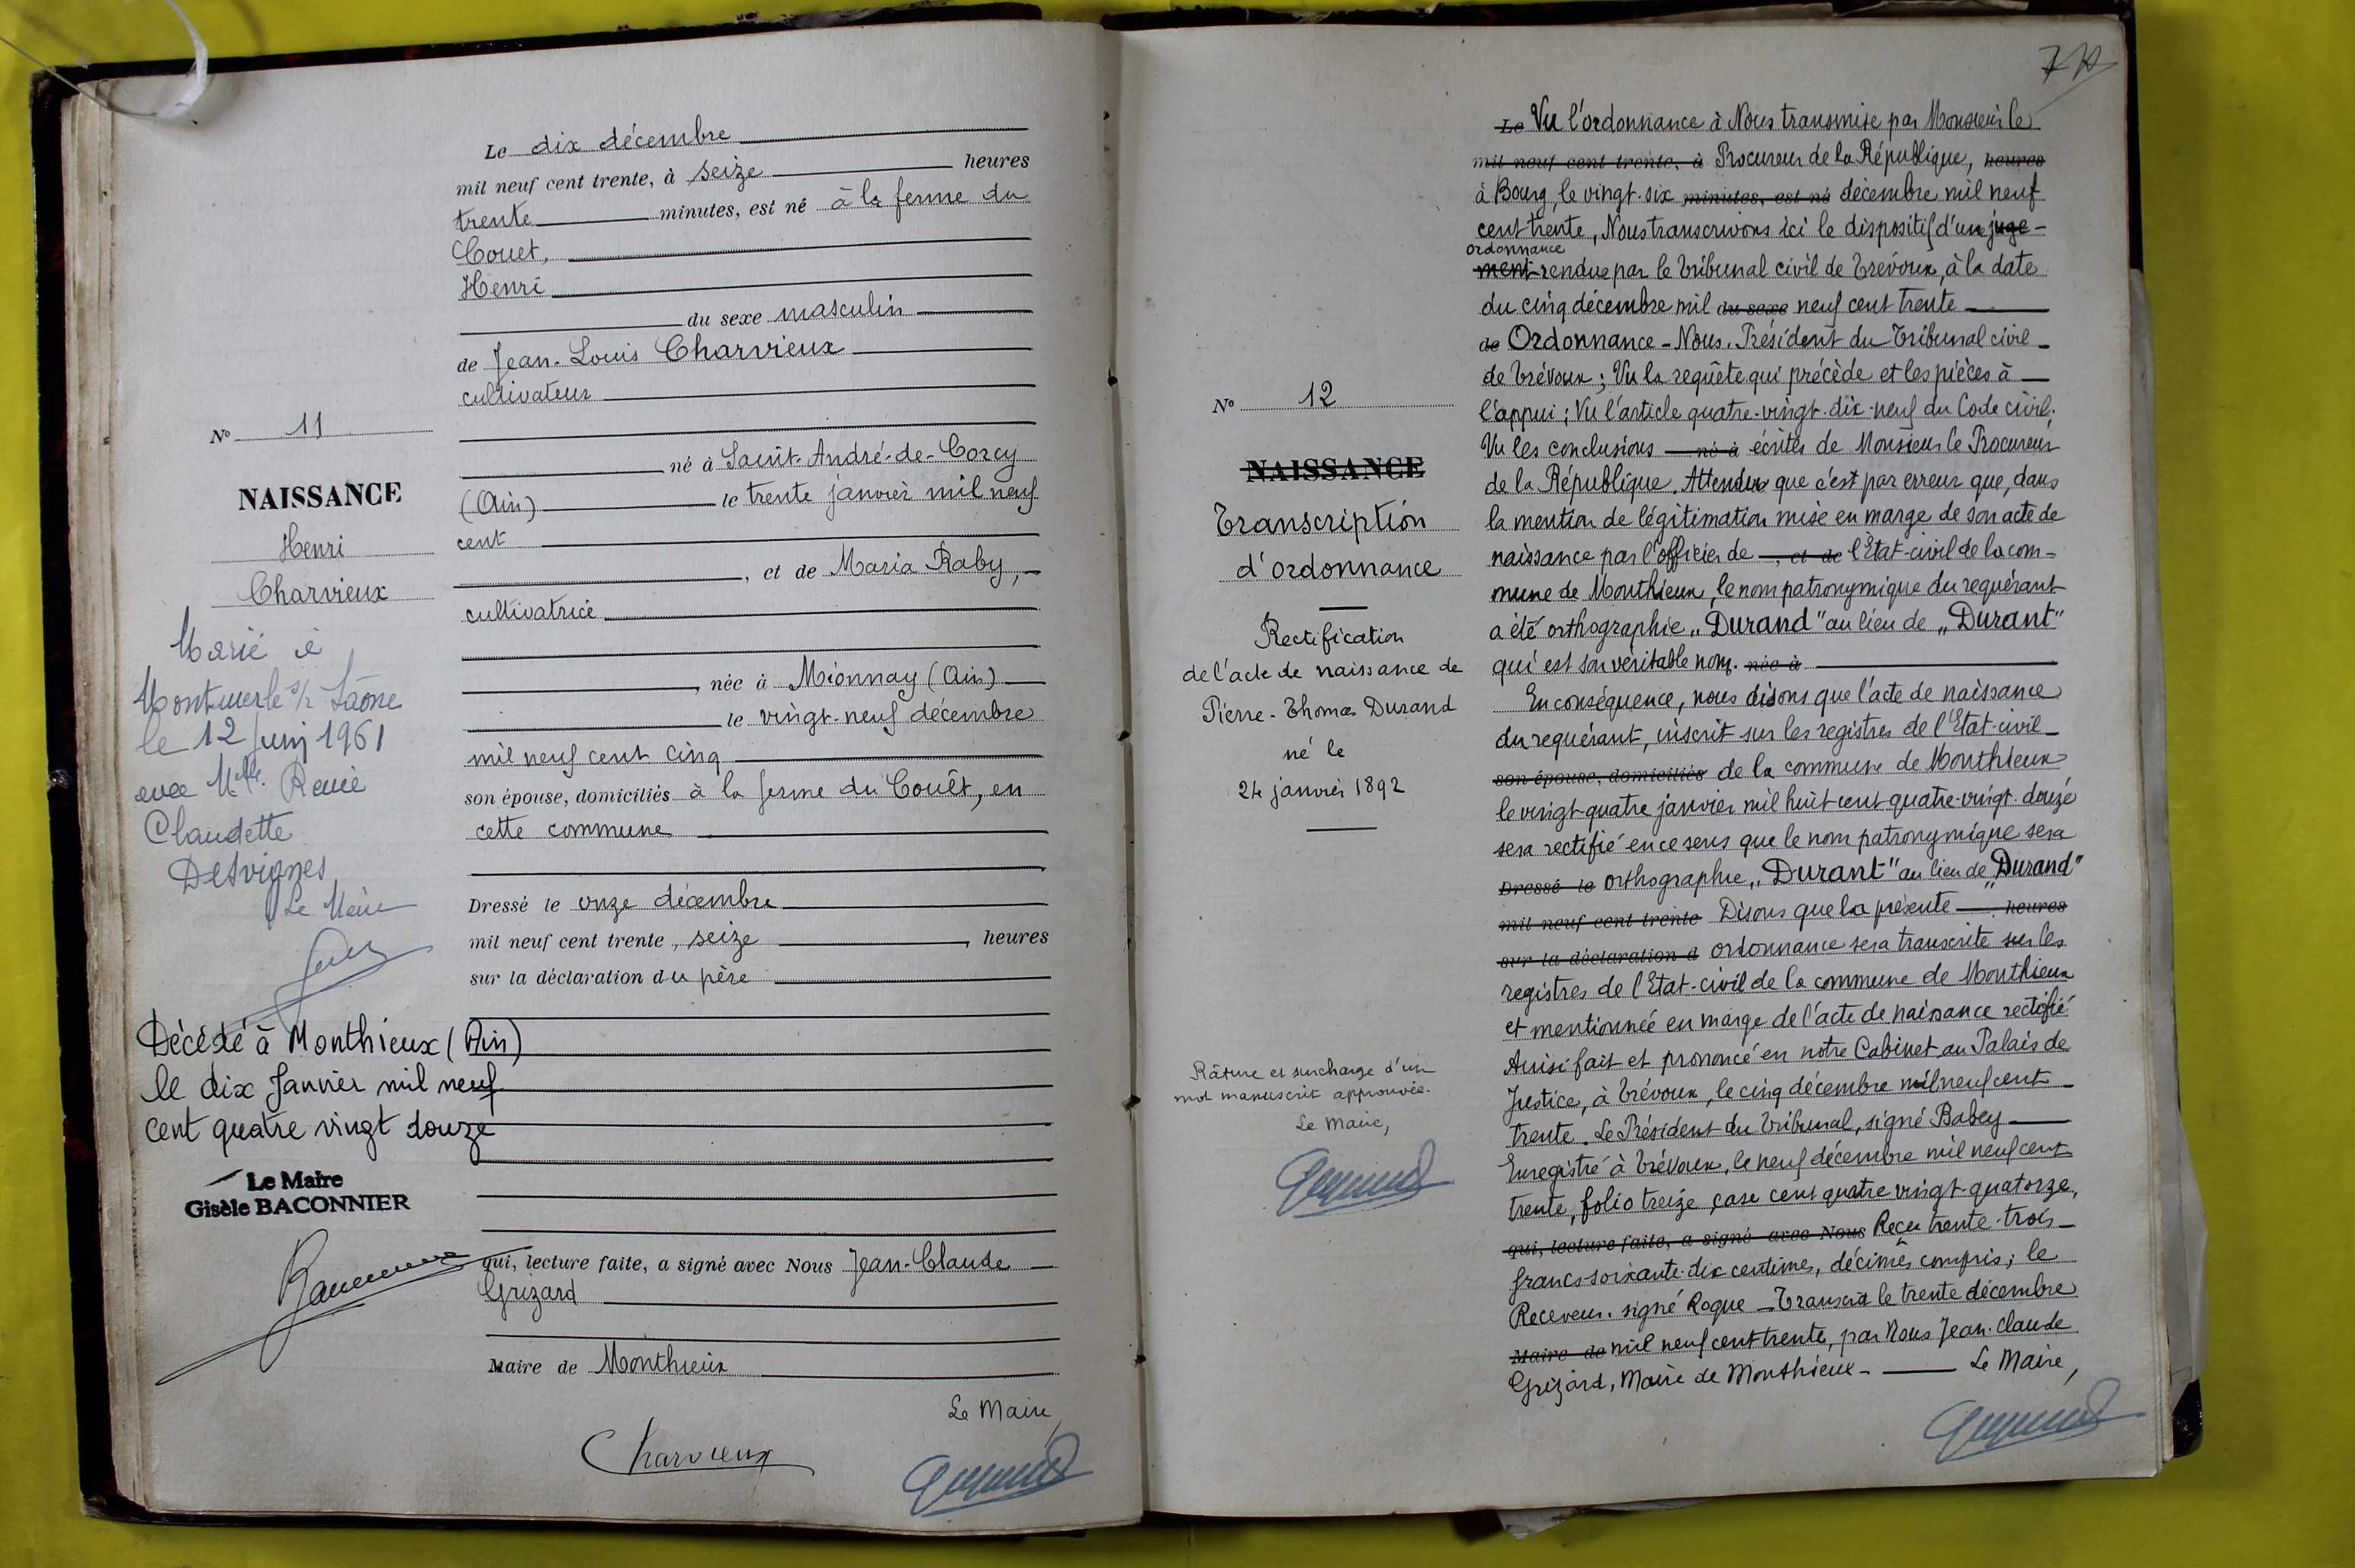 Le dix décembre
mil neuf cent trente, à seize heures
trente minutes, est né à la ferme du
Couet,
Henri
du sexe masculin
de Jean-Louis Charvieux
cultivateur
né à Saint-André-de-Corcy
(Ain) le trente janvier mil neuf
cent
, et de Maria Raby,
cultivatrice
, née à Mionnay (Ain)
le vingt-neuf décembre
mil neuf cent cinq
son épouse, domiciliés à la ferme du Couêt, en
cette commune
Dressé le onze décembre
mil neuf cent trente, seize , heures
sur la déclaration du père
qui, lecture faite, a signé avec Nous Jean-Claude
Grizard
Maire de Monthieux
Le Maire,
Charvieux
N° 11
NAISSANCE
Henri
Charvieux
Marié à
Montmerle s/ Saône
le 12 Juin 1961
avec Melle Renée
Claudette
Desvignes
Le Maire
Décédé à Monthieux (Ain)
le dix Janvier mil neuf
cent quatre vingt douze
Le Maire
Gisèle BACONNIER
N° 12
NAISSANCE
Transcription
d'ordonnance
Rectification
de l'acte de naissance de
Pierre-Thomas Durand
né le
24 janvier 1892
Râture et surcharge d'un
mot manuscrit approuvée.
Le Maire,
Le Vu l'ordonnance à Nous transmise par Monsieur le
mil neuf cent trente, à Procureur de la République, heures
à Bourg le vingt-six minutes, est né décembre mil neuf
cent trente, Nous transcrivons ici le dispositif d'un juge-
ordonnance
ment rendue par le Tribunal civil de Trévoux, à la date
du cinq décembre mil du sexe neuf cent trente
de Ordonnance - Nous, Président du Tribunal civil
de Trévoux ; Vu la requête qui précède et les pièces à
l'appui ; Vu l'article quatre-vingt-dix-neuf du Code civil;
Vu les conclusions né à écrites de Monsieur le Procureur
de la République. Attendu que c'est par erreur que, dans
la mention de légitimation mise en marge de son acte de
naissance par l'officier de , et de l'Etat-civil de la com-
mune de Monthieux, le nom patronymique du requérant
a été orthographié „Durand" au lieu de „Durant"
qui est son véritable nom. née à
En conséquence, nous disons que l'acte de naissance
du requérant, inscrit sur les registres de l'Etat-civil
son épouse, domiciliés de la commune de Monthieux
le vingt-quatre janvier mil huit cent quatre-vingt-douze
sera rectifié en ce sens que le nom patronymique sera
Dressé le orthographié „Durant" au lieu de „Durand"
mil neuf cent trente Disons que la présente , heures
sur la déclaration d ordonnance sera transcrite sur les
registres de l'Etat-civil de la commune de Monthieux
et mentionnée en marge de l'acte de naissance rectifié
Ainsi fait et prononcé en notre Cabinet au Palais de
Justice, à Trévoux, le cinq décembre mil neuf cent
trente. Le Président du Tribunal, signé Babey
Enregistré à Trévoux, le neuf décembre mil neuf cent
trente, folio treize, case cent quatre vingt-quatorze,
qui, lecture faite, a signé avec Nous Reçu trente-trois
francs soixante-dix centimes, décimes compris; le
Receveur. signé Roque - Transcrit le trente décembre
Maire de mil neuf cent trente, par Nous Jean-Claude
Grizard, Maire de Monthieux - Le Maire,